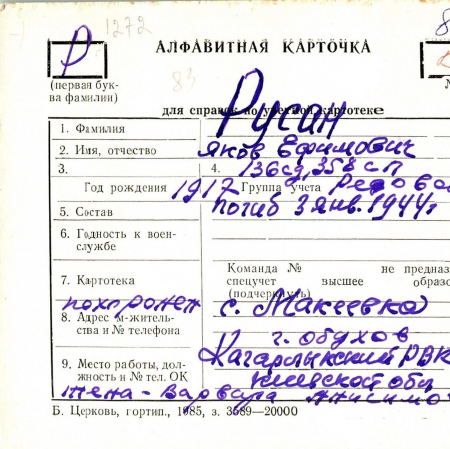 Р
1272
83
8
АЛФАВИТНАЯ КАРТОЧКА
(первая бук-
ва фамилии)
для справок по учетной картотеке
1. Фамилия Русан
2. Имя, отчество Яков Ефимович
3. 4. 136 сд, 358 сп
Год рождения 1912 Группа учета
5. Состав погиб 3 янв. 1944г
6. Годность к воен-
ной службе
Команда № не предназ
7. Картотека спецучет высшее образо
(подчеркнуть)
похоронен с. Макеевка
8. Адрес м-житель-
ства и № телефона г. Обухов
Кагарлыкский РВК
9. Место работы, дол-
жность и № тел. ОК Киевской обл
жена - Варвара Анисимо
Б. Церковь, гортип., 1985, з. 3589—20000